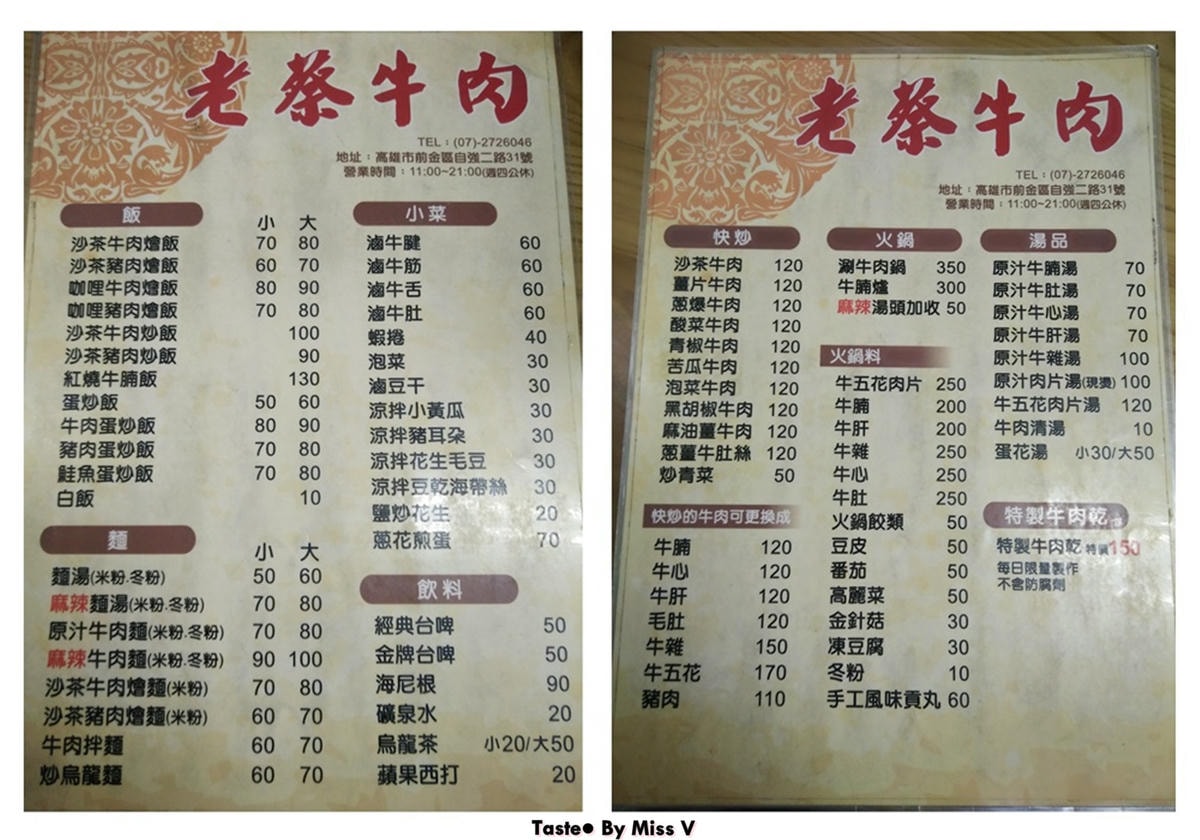 老蔡牛肉
TEL：(07)-2726046
地址：高雄市前金區自強二路31號
營業時間：11:00~21:00(週四公休)
飯
小 大
沙茶牛肉燴飯 70 80
沙茶豬肉燴飯 60 70
咖哩牛肉燴飯 80 90
咖哩豬肉燴飯 70 80
沙茶牛肉炒飯 100
沙茶豬肉炒飯 90
紅燒牛腩飯 130
蛋炒飯 50 60
牛肉蛋炒飯 80 90
豬肉蛋炒飯 70 80
鮭魚蛋炒飯 70 80
白飯 10
麵
小 大
麵湯(米粉.冬粉) 50 60
麻辣麵湯(米粉.冬粉) 70 80
原汁牛肉麵(米粉.冬粉) 70 80
麻辣牛肉麵(米粉.冬粉) 90 100
沙茶牛肉燴麵(米粉) 70 80
沙茶豬肉燴麵(米粉) 60 70
牛肉拌麵 60 70
炒烏龍麵 60 70
小菜
滷牛腱 60
滷牛筋 60
滷牛舌 60
滷牛肚 60
蝦捲 40
泡菜 30
滷豆干 30
涼拌小黃瓜 30
涼拌豬耳朵 30
涼拌花生毛豆 30
涼拌豆乾海帶絲 30
鹽炒花生 20
蔥花煎蛋 70
飲料
經典台啤 50
金牌台啤 50
海尼根 90
礦泉水 20
烏龍茶 小20/大50
蘋果西打 20
老蔡牛肉
TEL：(07)-2726046
地址：高雄市前金區自強二路31號
營業時間：11:00~21:00(週四公休)
快炒
沙茶牛肉 120
薑片牛肉 120
蔥爆牛肉 120
酸菜牛肉 120
青椒牛肉 120
苦瓜牛肉 120
泡菜牛肉 120
黑胡椒牛肉 120
麻油薑牛肉 120
蔥薑牛肚絲 120
炒青菜 50
快炒的牛肉可更換成
牛腩 120
牛心 120
牛肝 120
毛肚 120
牛雜 150
牛五花 170
豬肉 110
火鍋
涮牛肉鍋 350
牛腩爐 300
麻辣湯頭加收 50
火鍋料
牛五花肉片 250
牛腩 200
牛肝 200
牛雜 250
牛心 250
牛肚 250
火鍋餃類 50
豆皮 50
番茄 50
高麗菜 50
金針菇 30
凍豆腐 30
冬粉 10
手工風味貢丸 60
湯品
原汁牛腩湯 70
原汁牛肚湯 70
原汁牛心湯 70
原汁牛肝湯 70
原汁牛雜湯 100
原汁肉片湯(現燙) 100
牛五花肉片湯 120
牛肉清湯 10
蛋花湯 小30/大50
特製牛肉乾
特製牛肉乾 特價150
每日限量製作
不含防腐劑
Taste● By Miss V